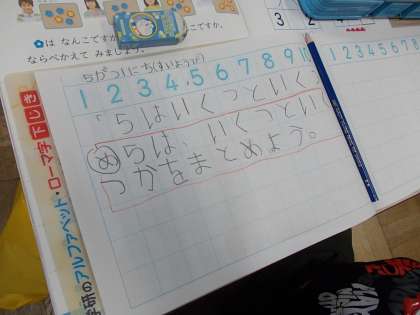 は なんこですか
ならべかえて みましょう。
3
5がつ11にち(すいようび)
1 2 3 4 5 6 7 8 9 10
1 2 3 4 5 6 7 8
「5はいくつといく
め 5は、いくつとい
つかなまとめよう。
学研のアルファベット・ローマ字下じき